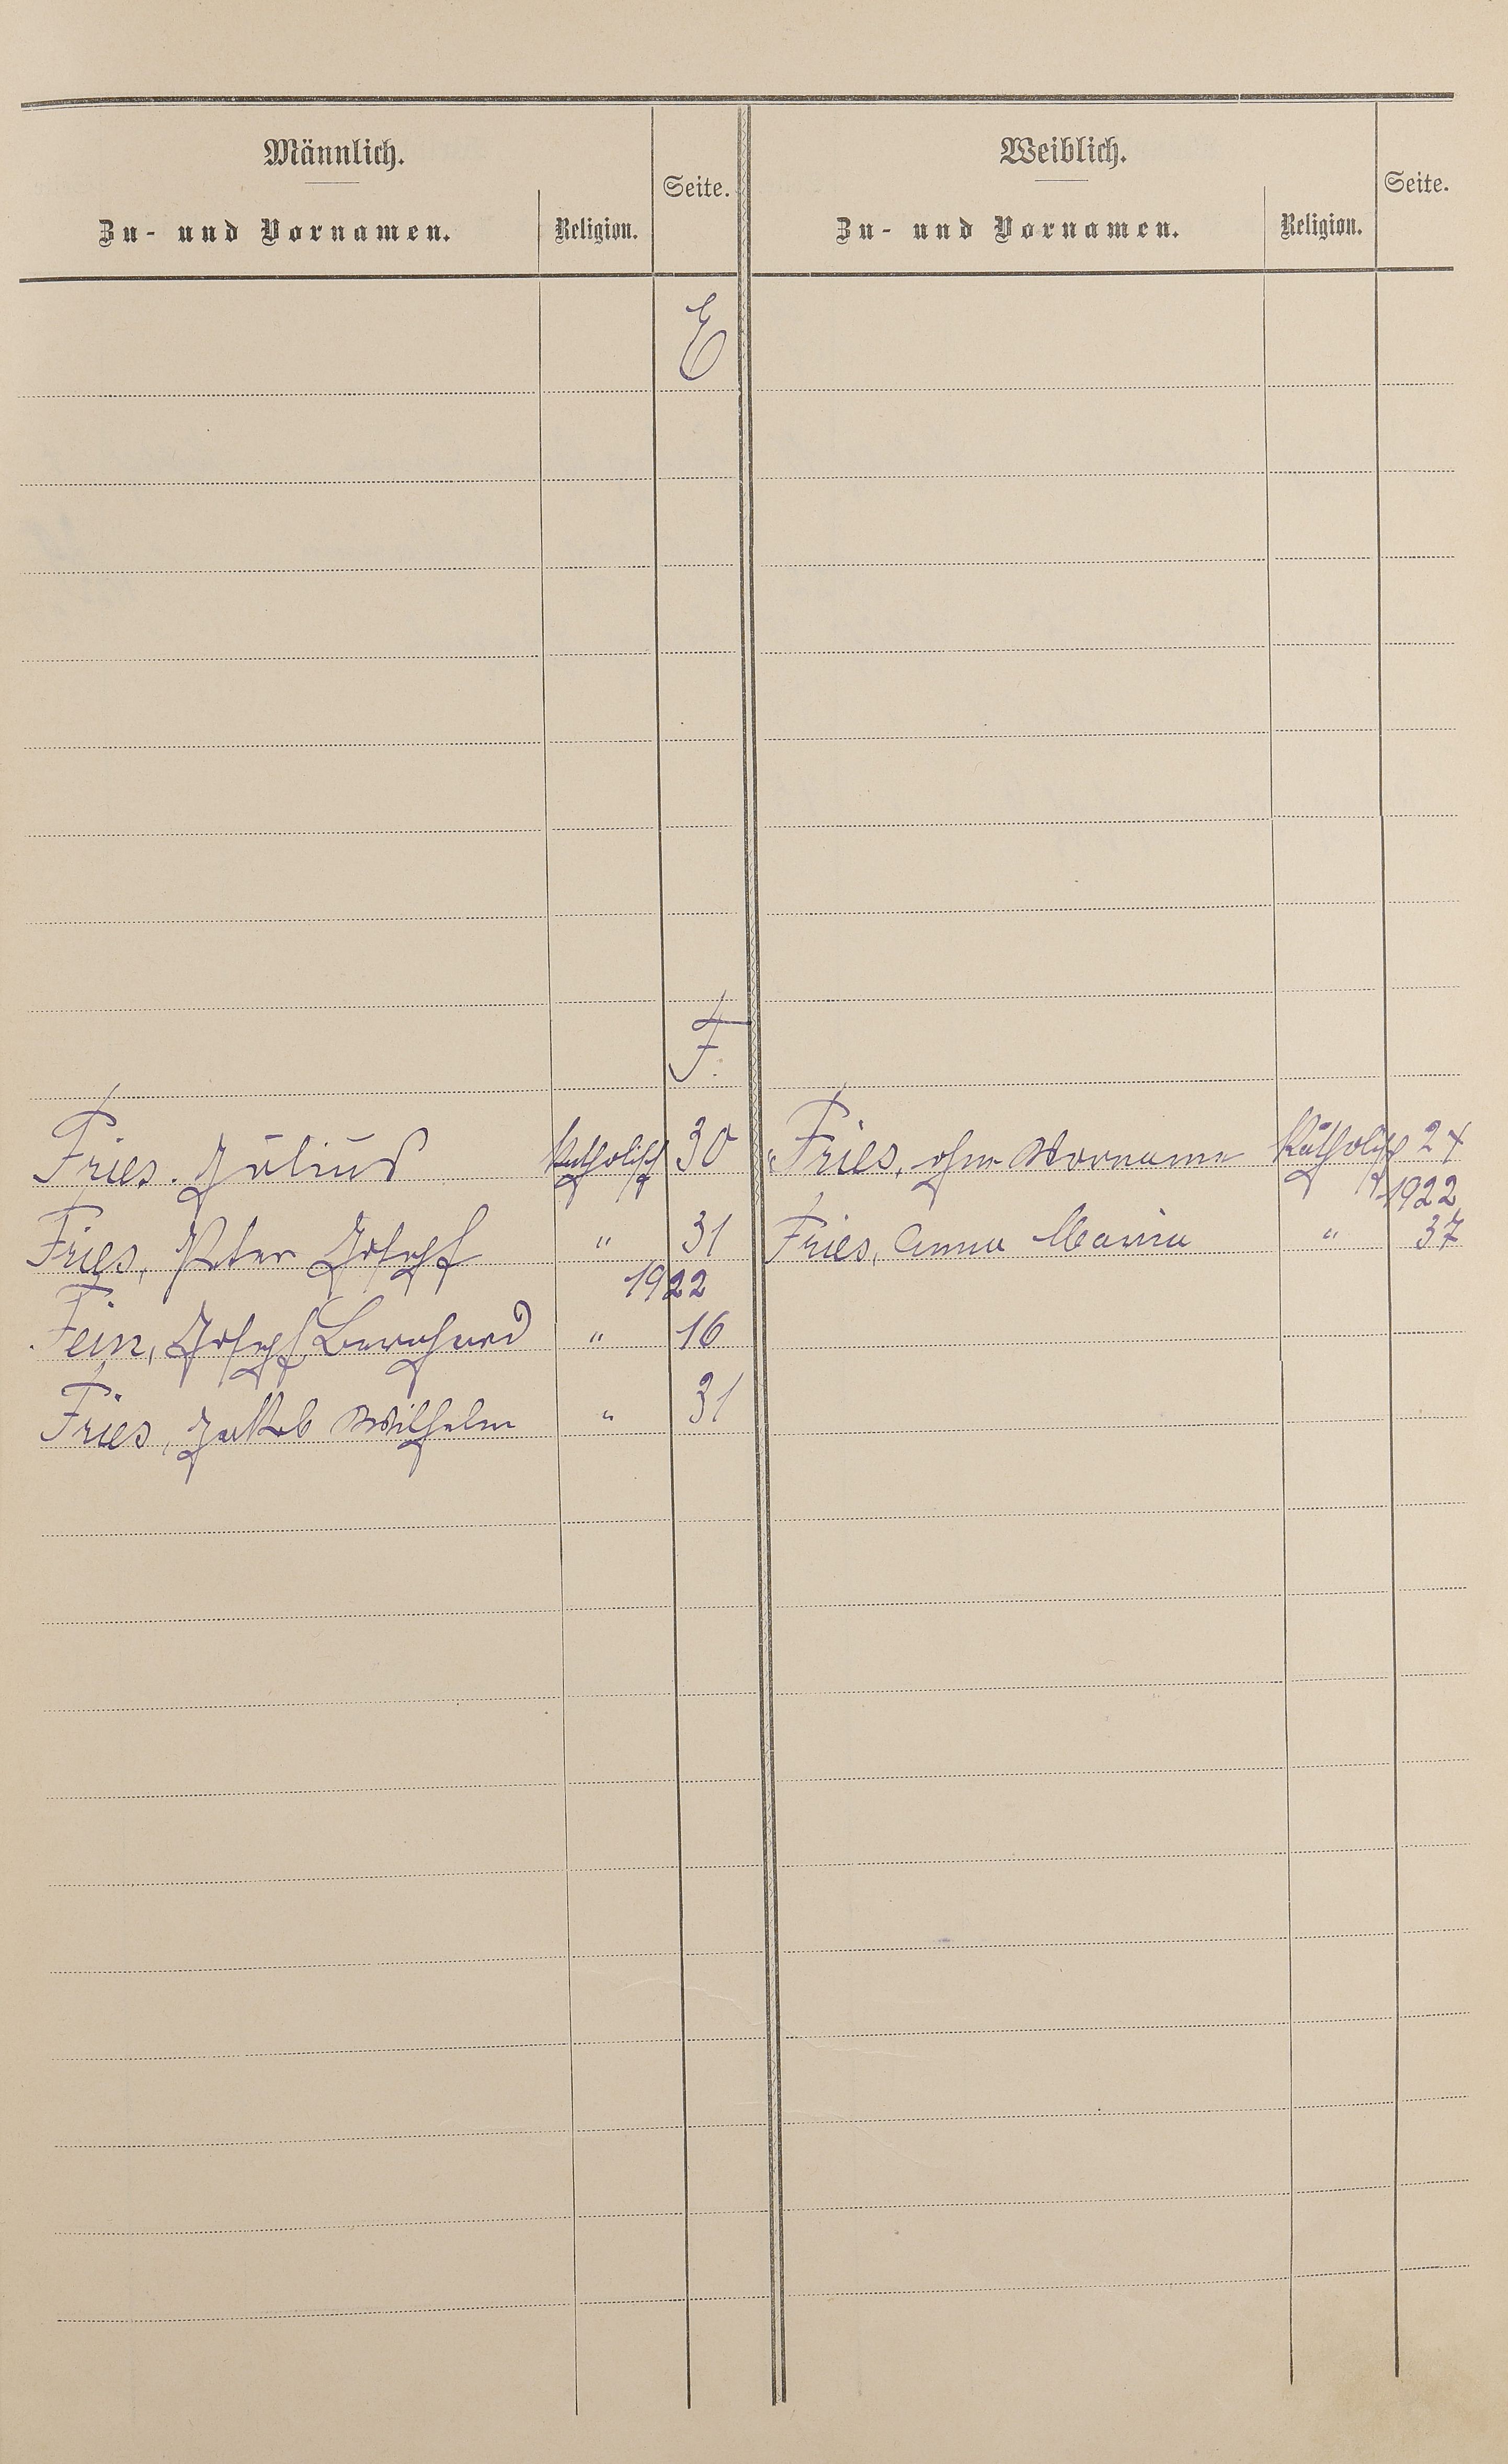 Männlich.
Zu- und Vornamen.
Religion.
Seite.
Weiblich.
Zu- und Vornamen.
Religion.
Seite.
E
F.
Fries. Julius Katholisch 30
Fries, Peter Joseph " 31
1922
Fein, Joseph Bernhard " 16
Fries, Jakob Wilhelm " 31
Fries, ohne Vorname Katholisch 24
1922
Fries, Anna Maria " 37